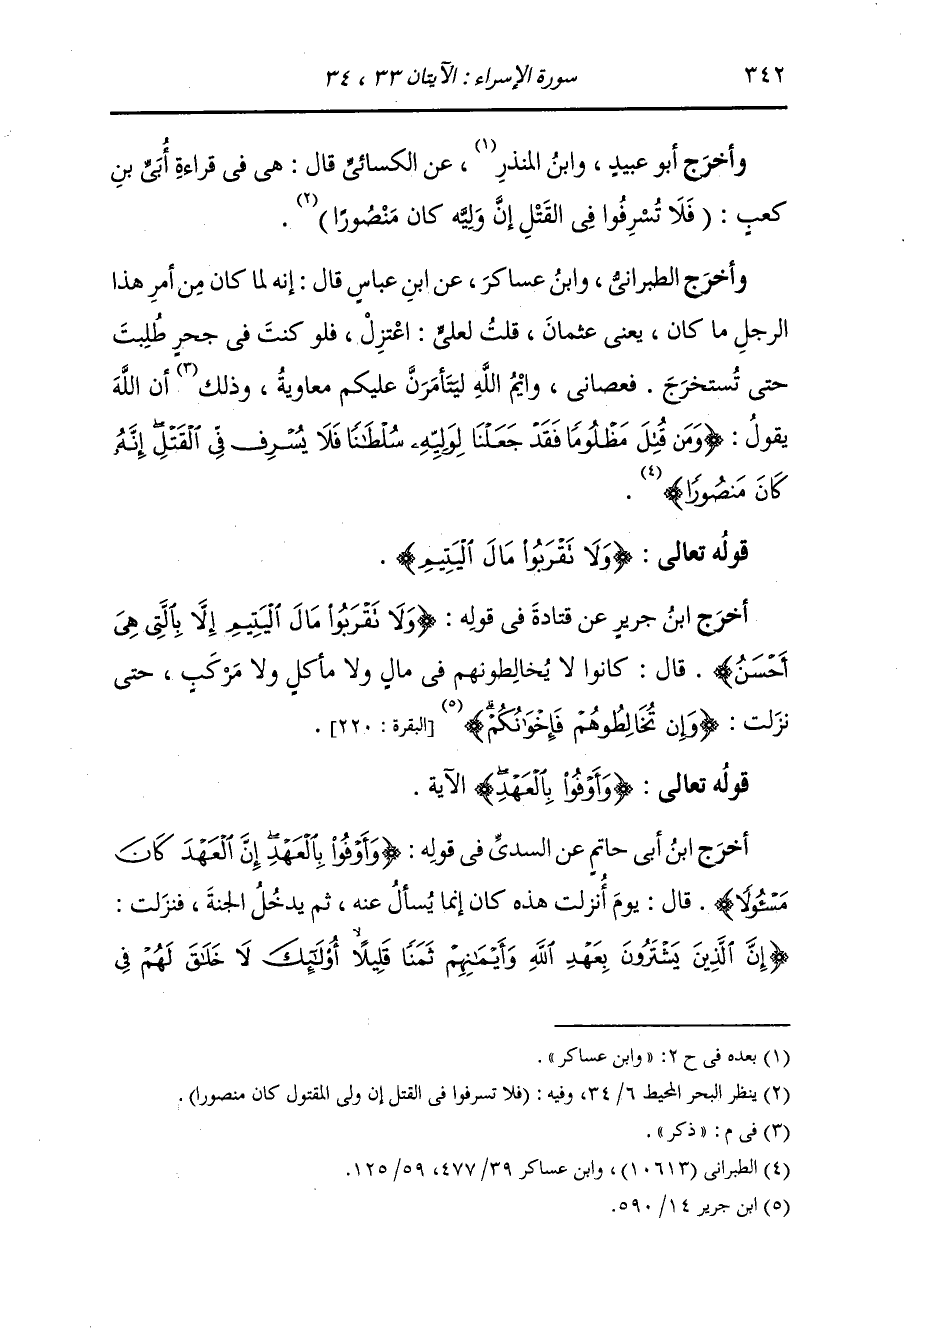 ٣٤٢
سورة الإسراء : الآيتان ٣٣ ، ٣٤
وأخرَج أبو عبيدٍ ، وابنُ المنذرِ(١) ، عن الكسائيِّ قال : هى فى قراءةِ أُبَىِّ بنِ
كعبٍ : ( فَلَا تُسْرِفُوا فِى القَتْلِ إنَّ وَلِيَّه كان مَنْصُورًا )(٢) .
وأخرَج الطبرانىُّ ، وابنُ عساكرَ ، عن ابنِ عباسٍ قال : إنه لما كان مِن أمرِ هذا
الرجلِ ما كان ، يعنى عثمانَ ، قلتُ لعلىٍّ : اعْتزِلْ ، فلو كنتَ فى جحرٍ طُلِبتَ
حتى تُستخرَجَ . فعصانى ، وايْمُ اللَّهِ ليَتأمَرَنَّ عليكم معاويةُ ، وذلك(٣) أن اللَّهَ
يقولُ : ﴿وَمَن قُتِلَ مَظْلُومًا فَقَدْ جَعَلْنَا لِوَلِيِّهِۦ سُلْطَٰنًا فَلَا يُسْرِف فِّى ٱلْقَتْلِۖ إِنَّهُۥ
كَانَ مَنصُورًا﴾(٤) .
قولُه تعالى : ﴿وَلَا تَقْرَبُوا۟ مَالَ ٱلْيَتِيمِ﴾ .
أخرَج ابنُ جريرٍ عن قتادةَ فى قولِه : ﴿وَلَا تَقْرَبُوا۟ مَالَ ٱلْيَتِيمِ إِلَّا بِٱلَّتِى هِىَ
أَحْسَنُ﴾ . قال : كانوا لا يُخالِطونهم فى مالٍ ولا مأكلٍ ولا مَرْكَبٍ ، حتى
نزَلت : ﴿وَإِن تُخَالِطُوهُمْ فَإِخْوَٰنُكُمْۚ﴾(٥) [البقرة : ٢٢٠] .
قولُه تعالى : ﴿وَأَوْفُوا۟ بِٱلْعَهْدِۖ﴾ الآية .
أخرَج ابنُ أبى حاتمٍ عن السدىِّ فى قولِه : ﴿وَأَوْفُوا۟ بِٱلْعَهْدِۖ إِنَّ ٱلْعَهْدَ كَانَ
مَسْـُٔولًا﴾ . قال : يومَ أُنزِلت هذه كان إنما يُسألُ عنه ، ثم يدخُلُ الجنةَ ، فنزَلت :
﴿إِنَّ ٱلَّذِينَ يَشْتَرُونَ بِعَهْدِ ٱللَّهِ وَأَيْمَٰنِهِمْ ثَمَنًا قَلِيلًا أُو۟لَٰٓئِكَ لَا خَلَٰقَ لَهُمْ فِى
(١) بعده فى ح ٢: « وابن عساكر » .
(٢) ينظر البحر المحيط ٦/ ٣٤، وفيه : (فلا تسرفوا فى القتل إن ولى المقتول كان منصورا) .
(٣) فى م : « ذكر » .
(٤) الطبرانى (١٠٦١٣) ، وابن عساكر ٣٩/ ٤٧٧، ٥٩/ ١٢٥.
(٥) ابن جرير ١٤/ ٥٩٠.